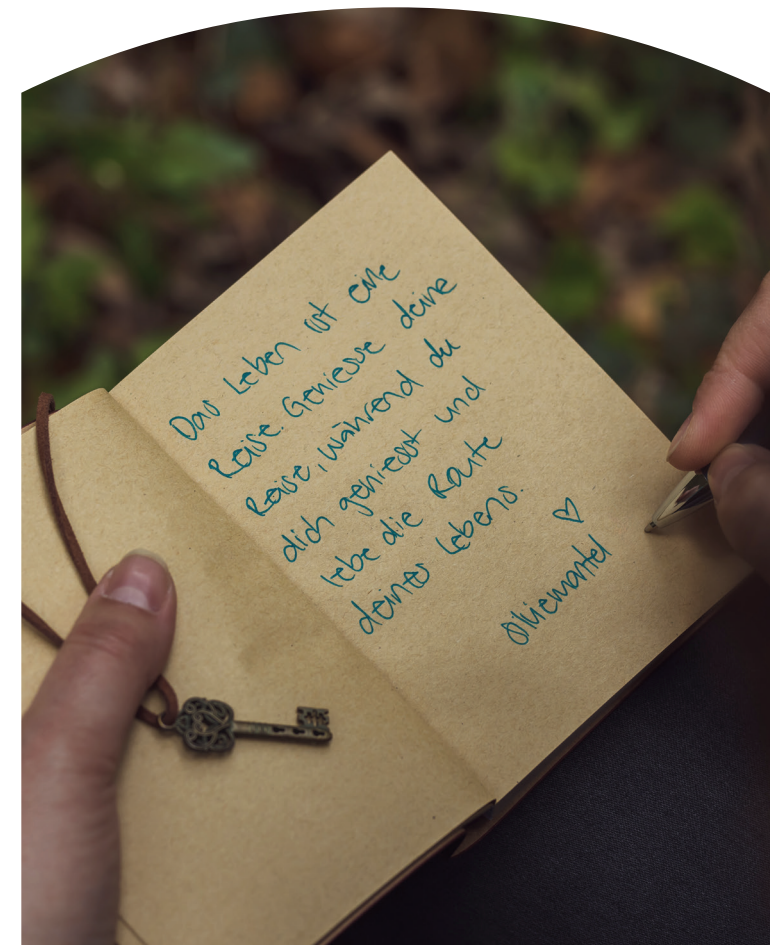 Das Leben ist eine
Reise. Geniesse deine
Reise, während du
dich geniesst und
lebe die Route
deines Lebens.
♡